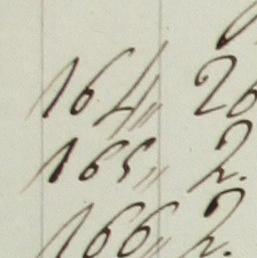 164 „ 26
165 „ 2.
166 „ 2.